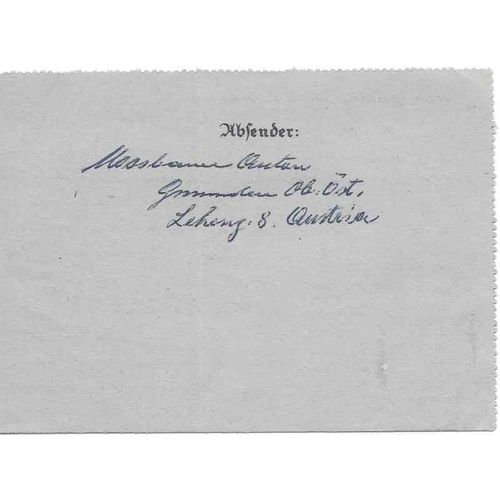 Absender:
Moosbauer Anton
Gmunden Ob. Öst,
Leheng. 8. Austria